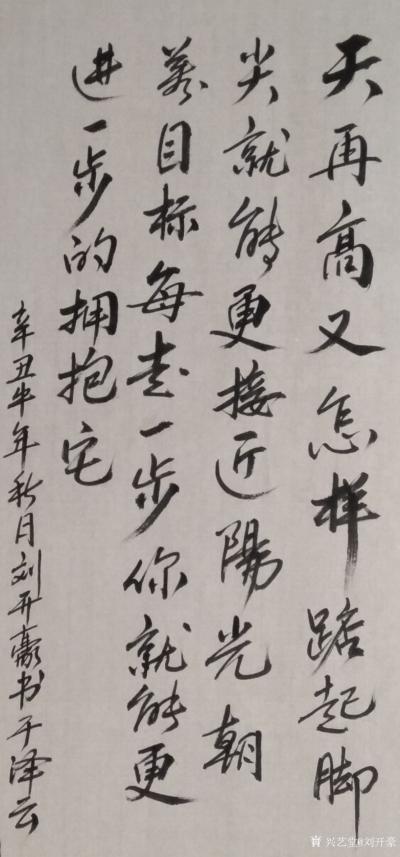 天再高又怎样踮起脚
尖就能更接近陽光朝
着目标每走一步你就能更
进一步的拥抱它
辛丑牛年秋月刘开豪书于泽云
兴艺堂@刘开豪